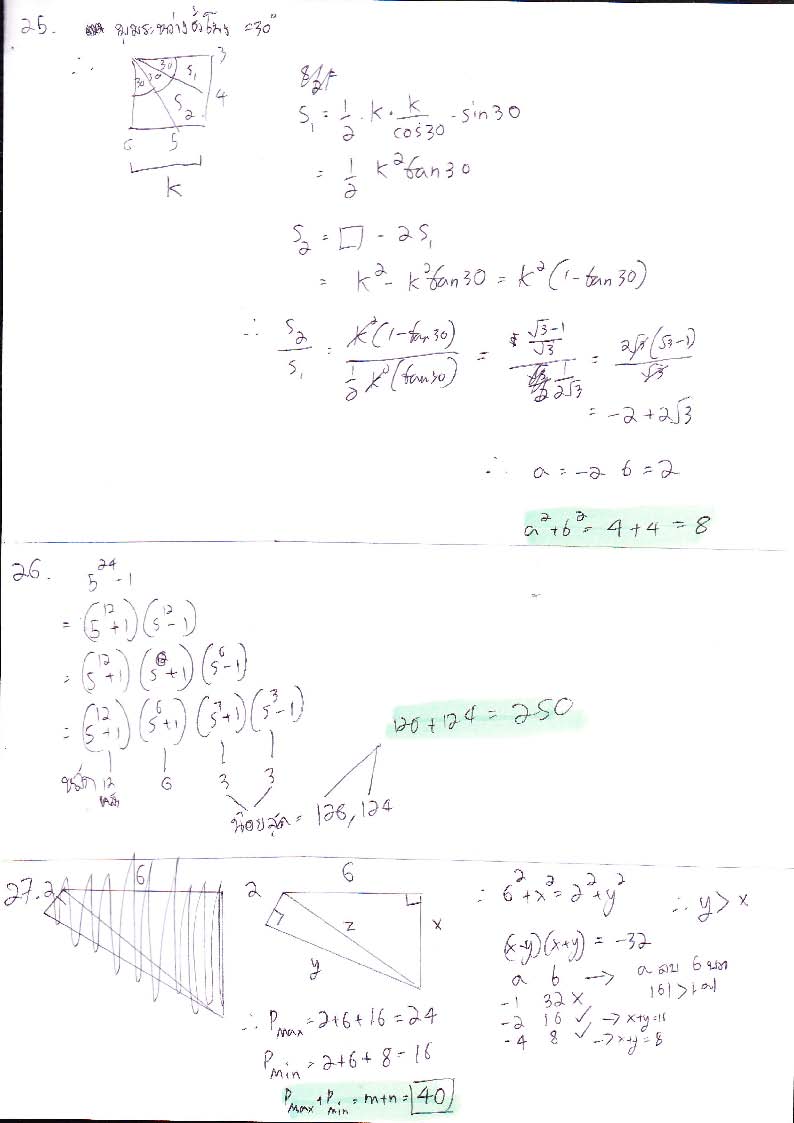 25. มุมระหว่างชั่วโมง = 30°
∴
3
30 S₁
30 30
4
S₂
6 5
k
S₁ = 1/2 · k · k/cos30 · sin30
= 1/2 k² tan30
S₂ = □ - 2S₁
= k² - k² tan30 = k²(1-tan30)
∴ S₂/S₁ = k²(1-tan30) / (1/2 k²(tan30)) = ((√3-1)/√3) / (1/(2√3)) = 2√3(√3-1)/√3
= -2+2√3
∴ a = -2 b = 2
a²+b² = 4+4 = 8
26. 5²⁴-1
= (5¹²+1)(5¹²-1)
= (5¹²+1)(5⁶+1)(5⁶-1)
= (5¹²+1)(5⁶+1)(5³+1)(5³-1)
12 6 3 3
หลัก
น้อยสุด = 126, 124
126+124 = 250
27. 2 6
2 6
z x
y
∴ 6²+x² = 2²+y² ∴ y > x
(x-y)(x+y) = -32
a b → a ลบ b บวก
|b| > |a|
-1 32 ×
-2 16 ✓ → x+y=16
-4 8 ✓ → x+y=8
∴ Pmax = 2+6+16 = 24
Pmin = 2+6+8 = 16
Pmax + Pmin = m+n = 40